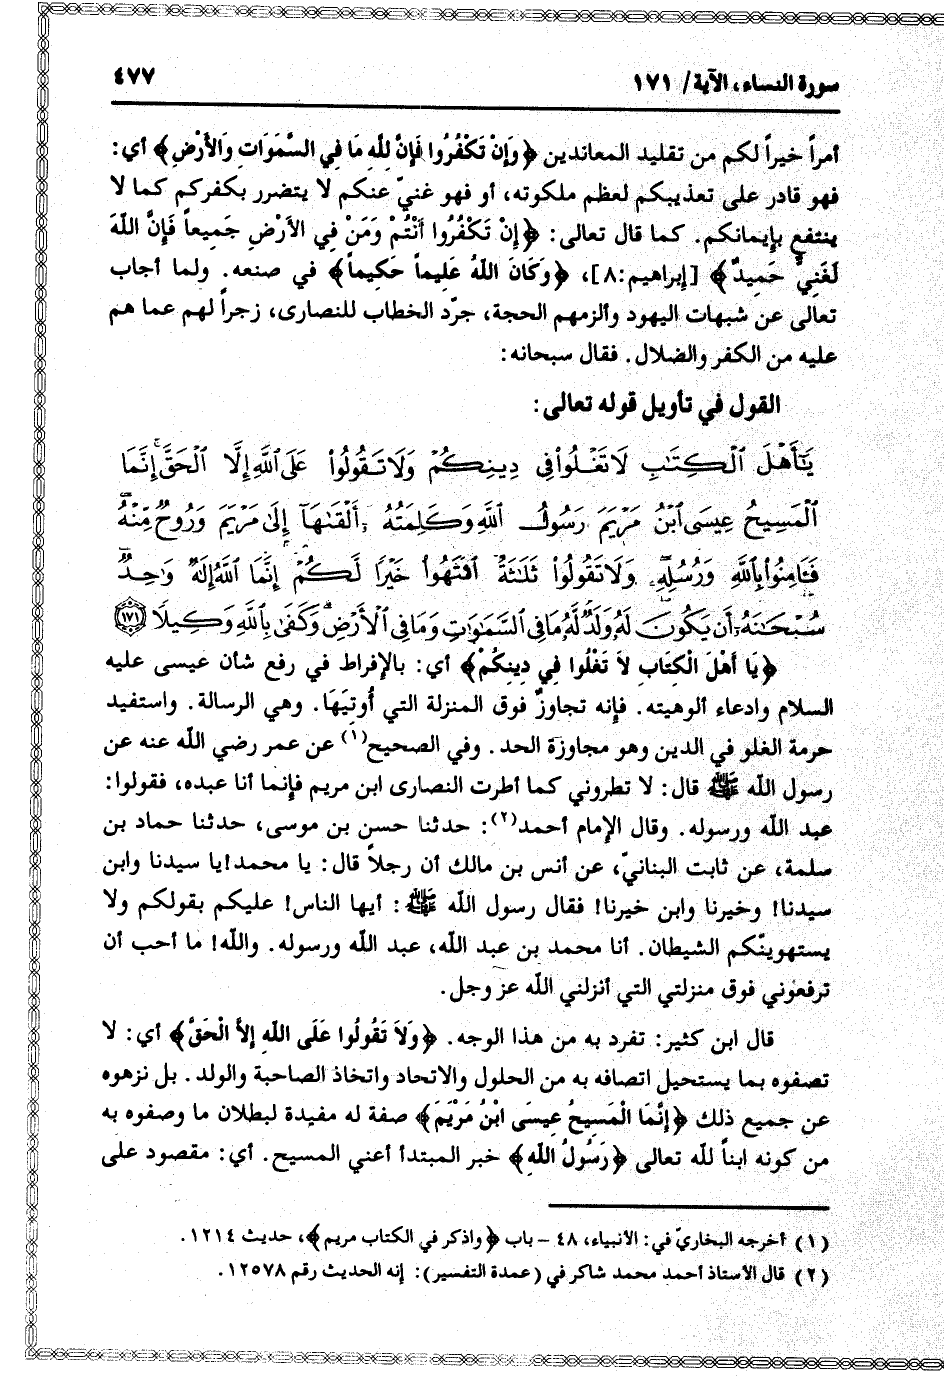 سورة النساء، الآية/ ١٧١
٤٧٧
أمراً خيراً لكم من تقليد المعاندين ﴿وَإِنْ تَكْفُرُوا فَإِنَّ لِلَّهِ مَا فِي السَّمَوَاتِ وَالأَرْضِ﴾ أي:
فهو قادر على تعذيبكم لعظم ملكوته، أو فهو غنيّ عنكم لا يتضرر بكفركم كما لا
ينتفع بإيمانكم. كما قال تعالى: ﴿إِنْ تَكْفُرُوا أَنْتُمْ وَمَنْ فِي الأَرْضِ جَمِيعاً فَإِنَّ اللَّهَ
لَغَنِيٌّ حَمِيدٌ﴾ [إبراهيم:٨]، ﴿وَكَانَ اللَّهُ عَلِيماً حَكِيماً﴾ في صنعه. ولما أجاب
تعالى عن شبهات اليهود وألزمهم الحجة، جرّد الخطاب للنصارى، زجراً لهم عما هم
عليه من الكفر والضلال. فقال سبحانه:
القول في تأويل قوله تعالى:
يَٰٓأَهْلَ ٱلْكِتَٰبِ لَا تَغْلُوا۟ فِى دِينِكُمْ وَلَا تَقُولُوا۟ عَلَى ٱللَّهِ إِلَّا ٱلْحَقَّ ۚ إِنَّمَا
ٱلْمَسِيحُ عِيسَى ٱبْنُ مَرْيَمَ رَسُولُ ٱللَّهِ وَكَلِمَتُهُۥٓ أَلْقَىٰهَآ إِلَىٰ مَرْيَمَ وَرُوحٌ مِّنْهُ ۖ
فَـَٔامِنُوا۟ بِٱللَّهِ وَرُسُلِهِۦ ۖ وَلَا تَقُولُوا۟ ثَلَٰثَةٌ ۚ ٱنتَهُوا۟ خَيْرًا لَّكُمْ ۚ إِنَّمَا ٱللَّهُ إِلَٰهٌ وَٰحِدٌ ۖ
سُبْحَٰنَهُۥٓ أَن يَكُونَ لَهُۥ وَلَدٌ ۘ لَّهُۥ مَا فِى ٱلسَّمَٰوَٰتِ وَمَا فِى ٱلْأَرْضِ ۗ وَكَفَىٰ بِٱللَّهِ وَكِيلًا ١٧١
﴿يَا أَهْلَ الْكِتَابِ لاَ تَغْلُوا فِي دِينِكُمْ﴾ أي: بالإفراط في رفع شأن عيسى عليه
السلام وادعاء ألوهيته. فإنه تجاوزٌ فوق المنزلة التي أُوتِيَهَا. وهي الرسالة. واستفيد
حرمة الغلو في الدين وهو مجاوزة الحد. وفي الصحيح(١) عن عمر رضي اللّه عنه عن
رسول اللّه ﷺ قال: لا تطروني كما أطرت النصارى ابن مريم فإنما أنا عبده، فقولوا:
عبد اللّه ورسوله. وقال الإمام أحمد(٢): حدثنا حسن بن موسى، حدثنا حماد بن
سلمة، عن ثابت البنانيّ، عن أنس بن مالك أن رجلاً قال: يا محمد! يا سيدنا وابن
سيدنا! وخيرنا وابن خيرنا! فقال رسول اللّه ﷺ: أيها الناس! عليكم بقولكم ولا
يستهوينّكم الشيطان. أنا محمد بن عبد اللّه، عبد اللّه ورسوله. واللّه! ما أحب أن
ترفعوني فوق منزلتي التي أنزلني اللّه عز وجل.
قال ابن كثير: تفرد به من هذا الوجه. ﴿وَلاَ تَقُولُوا عَلَى اللَّهِ إِلاَّ الْحَقَّ﴾ أي: لا
تصفوه بما يستحيل اتصافه به من الحلول والاتحاد واتخاذ الصاحبة والولد. بل نزهوه
عن جميع ذلك ﴿إِنَّمَا الْمَسِيحُ عِيسَى ابْنُ مَرْيَمَ﴾ صفة له مفيدة لبطلان ما وصفوه به
من كونه ابناً للّه تعالى ﴿رَسُولُ اللَّهِ﴾ خبر المبتدأ أعني المسيح. أي: مقصود على
(١) أخرجه البخاريّ في: الأنبياء، ٤٨ – باب ﴿واذكر في الكتاب مريم﴾، حديث ١٢١٤.
(٢) قال الأستاذ أحمد محمد شاكر في (عمدة التفسير): إنه الحديث رقم ١٢٥٧٨.